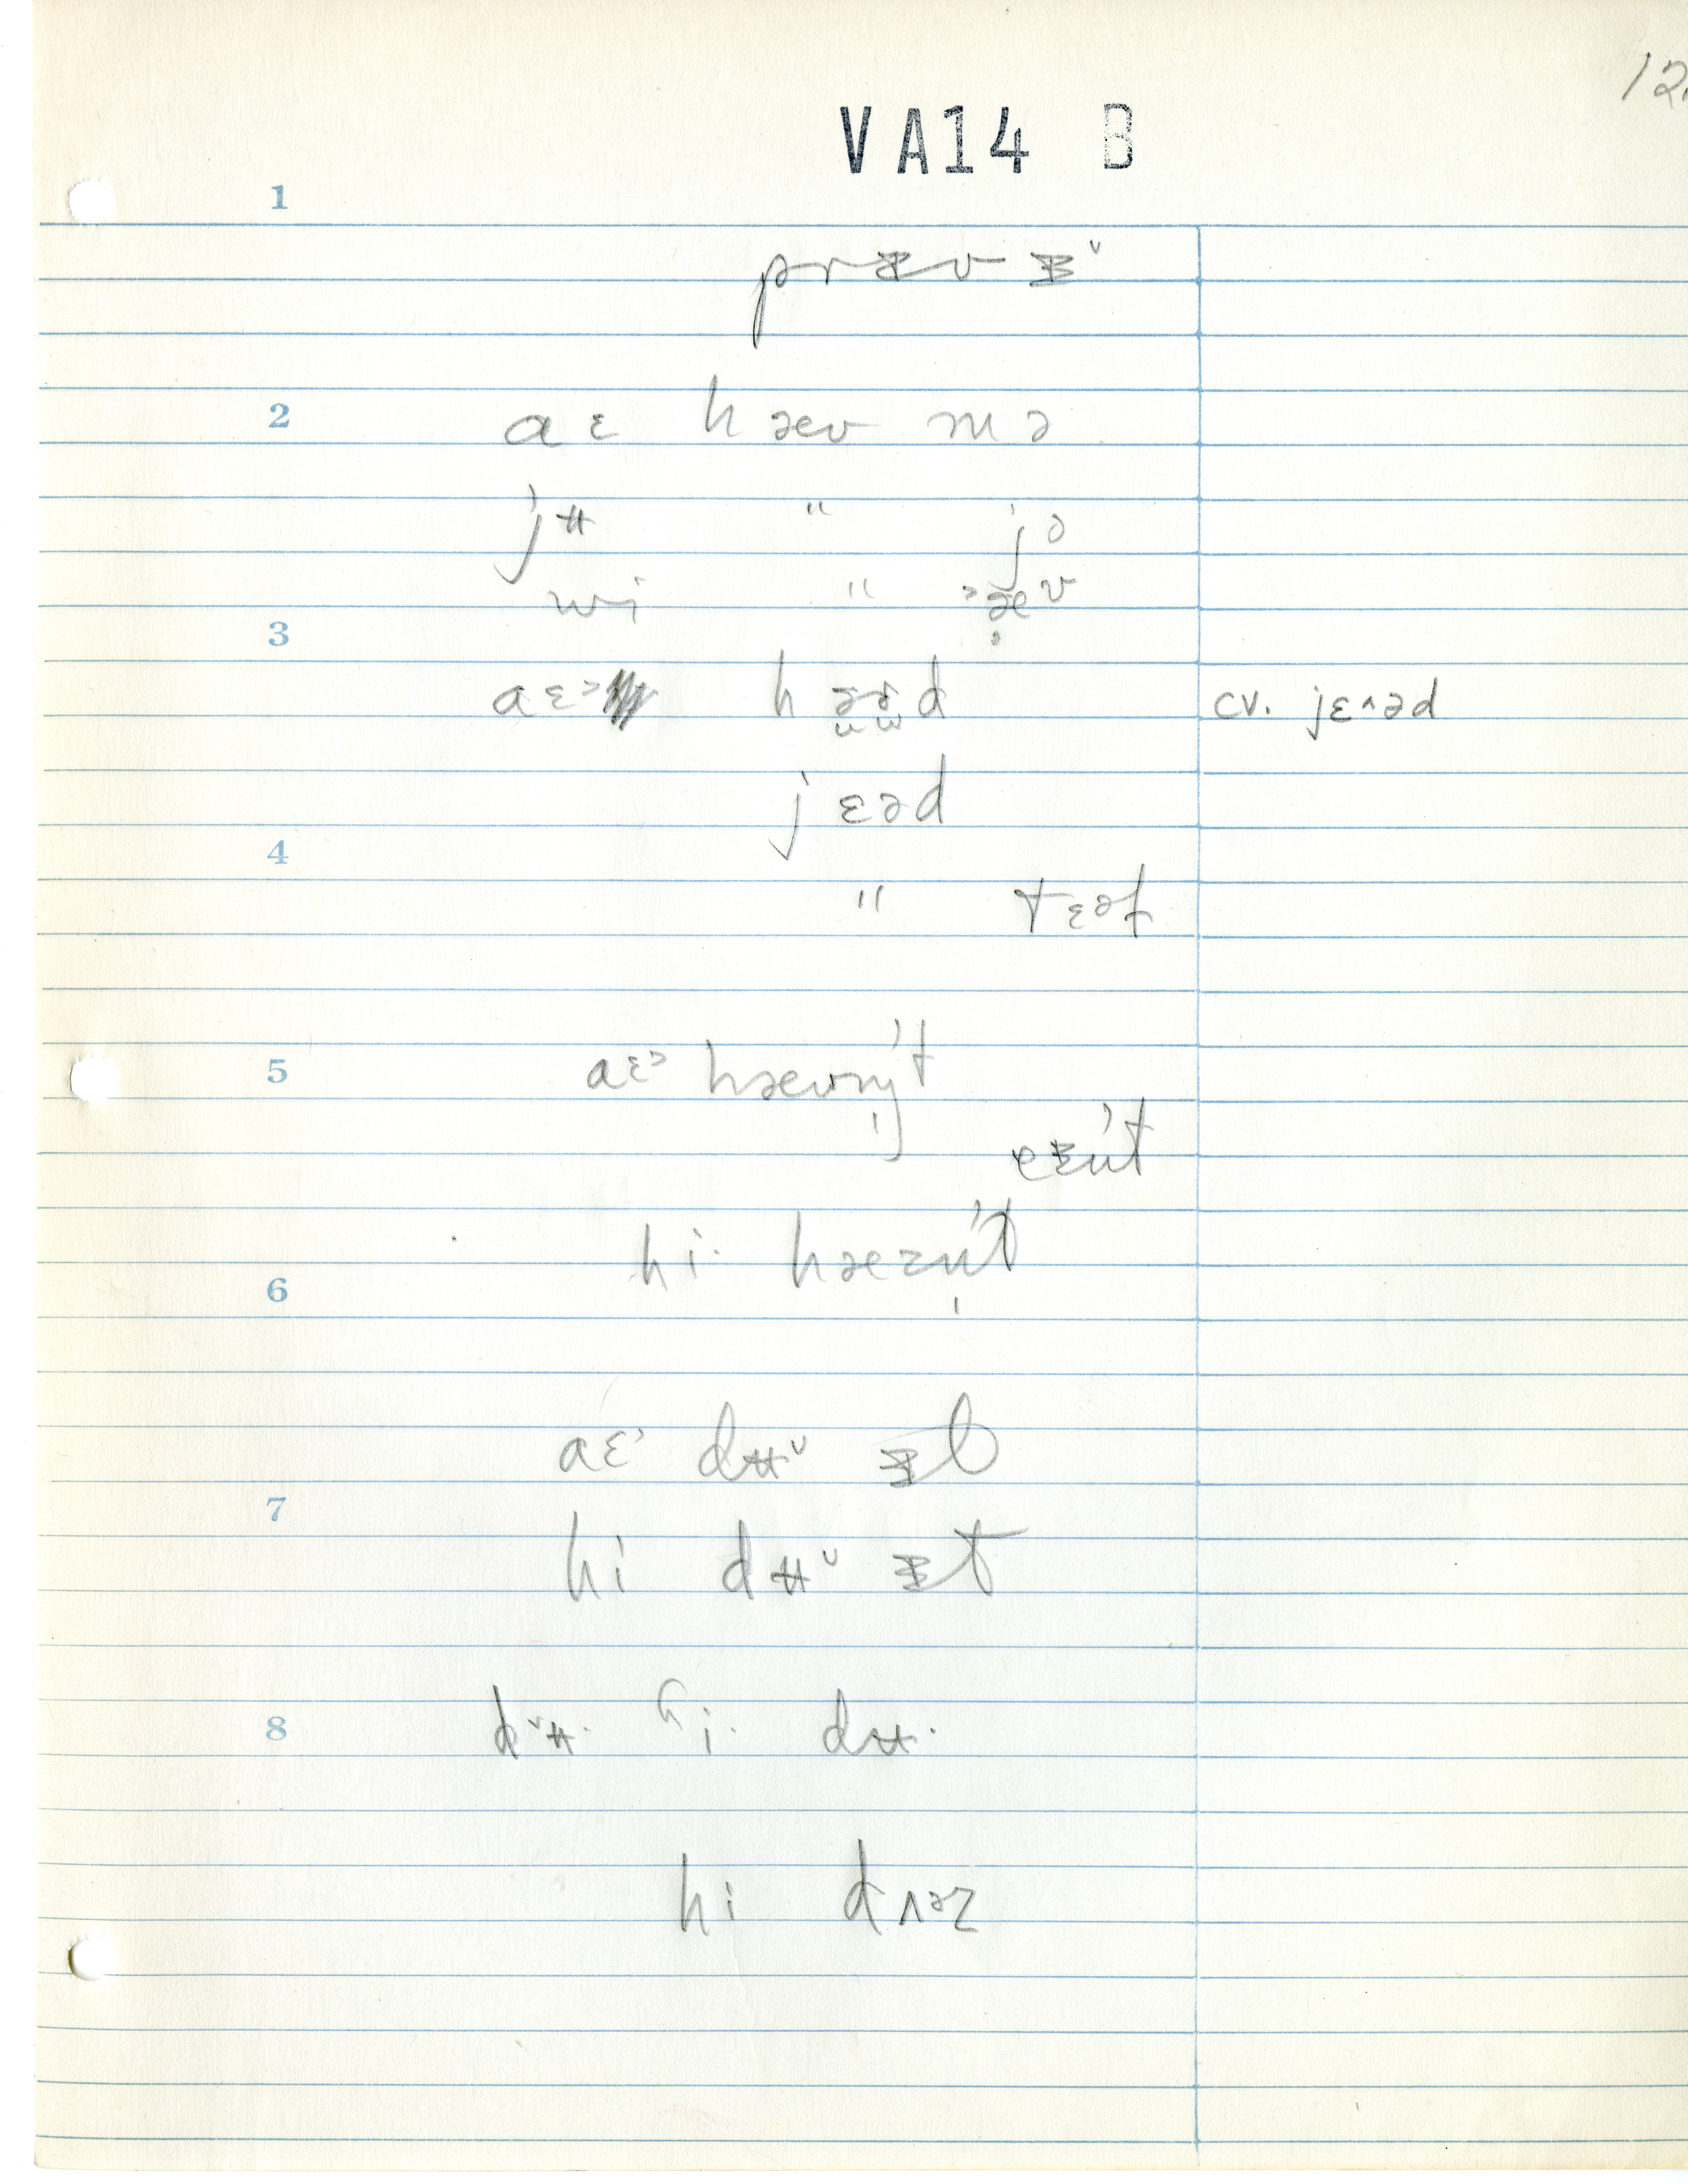 12.
VA14 B
1
prᵻv ᵻ˅
2 aɛ hæv mə
jʉ " jə
wi " ˃æ̣v
3
aɛ˃ hɜɚd cv. jɛ˄əd
jɛəd
4
" tɛəf
5 aɛ˃ hævn̩'t
ɐᵻn't
hi· hæzn̩'t
6
aɛ˃ dʉ˅ ᵻt
7
hi dʉ˅ ᵻt
8 d˅ʉ· ɦi· dʉ·
hi dʌəz